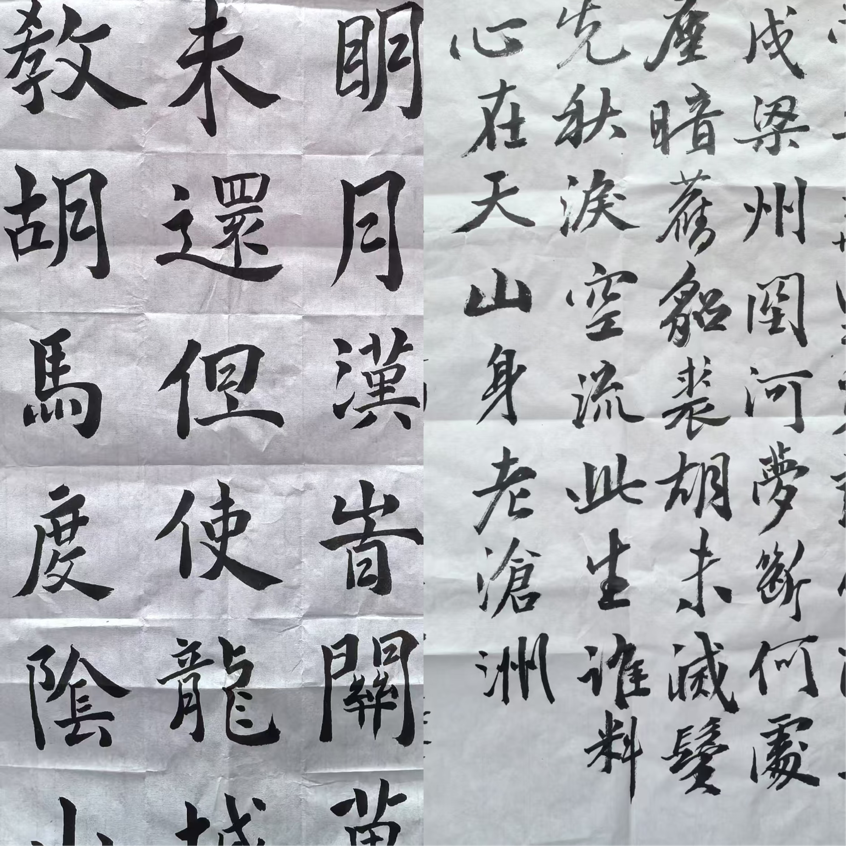 明月漢峕關萬
未還但使龍城
教胡馬度隂山
戍梁州關河夢斷何處
塵暗舊貂裘胡未滅鬢
先秋淚空流此生誰料
心在天山身老滄洲